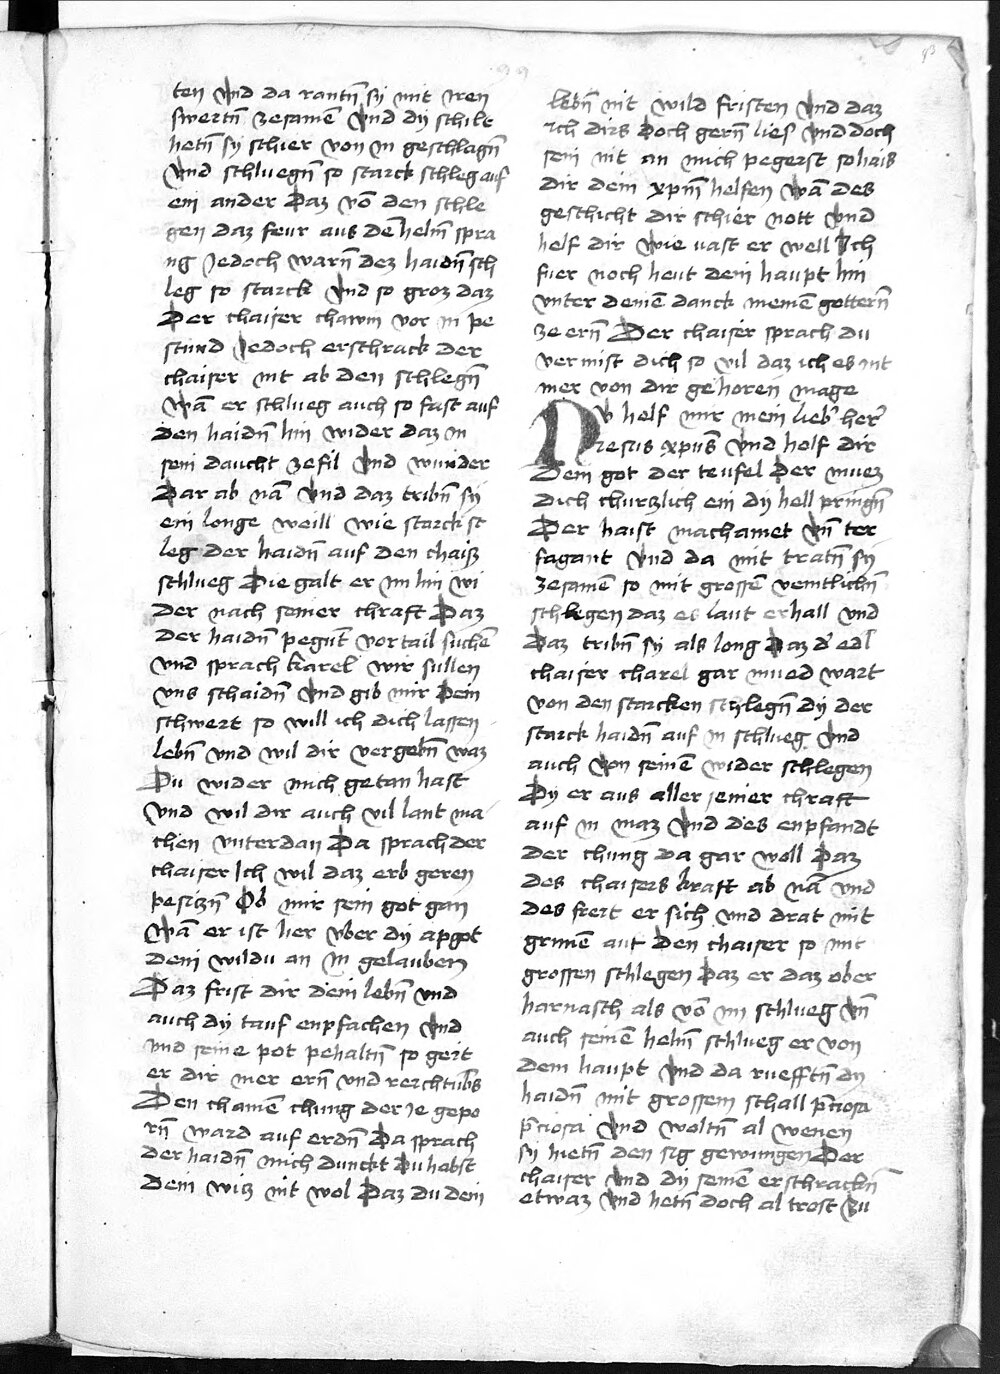 ten vnd da rantn̄ sy mit Iren
swertn̄ zesamē vnd dy schilt
hetn̄ sy schier von in geschlagn̄
vnd schluegn̄ so starck schleg auf
ein ander Daz vō den schle
gen daz feur aus dē helm̄ spra
ng Jedoch warn̄ dez haidn̄ sch
leg so starck vnd so groz daz
Der chaiser chawm vor in pe
stund Jedoch erschrack der
chaiser nit ab den schlegn̄
wā er schlueg auch so fast auf
den haidn̄ hin wider daz in
sein daucht zefil vnd wunder
Dar ab nā vnd daz tribn̄ sy
ein longe weill wie starck sc
leg der haidn̄ auf den chaiß
schlueg Die galt er im hin wi
der nach seiner chraft Daz
der haidn̄ pegūt vortail suchē
vnd sprach karel wir sullen
vns schaidn̄ vnd gib mir dein
schwert so will ich dich lassen
lebn̄ vnd wil dir vergebn̄ waz
Du wider mich getan hast
vnd wil dir auch vil lant ma
chen vnterdan Da sprach der
chaiser Ich wil daz erb geren
pesiczn̄ Ob mir sein got gan
wā er ist her vber dy apgot
Dem wildu an In gelauben
Daz frist dir dein lebn̄ vnd
auch dy tauf enpfachen vnd
vnd seine pot pehaltn̄ so geit
er dir mer ern̄ vnd reichtubs
Den chainē chung der ie gepo
rn̄ ward auf erdn̄ Da sprach
der haidn̄ mich dunckt Du habst
Dem wiz nit wol Daz du dein
99
93
lebn̄ nit wild fristen vnd daz
ich dirs doch gern̄ lies vnd doch
sein nit an mich pegerst so hais
dir dein xpm̄ helfen wā des
geschicht dir schier nott vnd
helf dir wie vast er well Ich
fuer noch heut dein haupt hin
vnter deinē danck meinē gottern̄
ze ern̄ Der chaiser sprach du
vermist dich so vil daz ich es nit
mer von dir gehoren mage
Nv helf mir mein lieb' her'
iesus xpūs vnd helf dir
Dein got der teufel Der muez
dich churczlich ein dy hell pringn̄
Der haist machamet vn̄ ter
fagant vnd da mit tratn̄ sy
zesamē so mit grossē veintlichn̄
schlegen daz es laut erhall vnd
Daz tribn̄ sy als long Daz d' edl
chaiser charel gar mued wart
von den starcken schlegn̄ dy der
starck haidn̄ auf in schlueg vnd
auch von seinē wider schlegen
Dy er aus aller seiner chraft
auf in maz vnd des enpfandt
der chung da gar woll Daz
des chaisers kraft ab nā vnd
des freit er sich vnd drat mit
grimē aut den chaiser so mit
grossen schlegen Daz er daz ober
harnasch als vō im schlueg vn̄
auch seinē helm̄ schlueg er von
dem haupt vnd da ruefftn̄ dy
haidn̄ mit grossem schall p̄ciosa
p̄ciosa vnd woltn̄ al wenen
sy hietn̄ den sig gewungen Der
chaiser vnd dy seinē erschrackn̄
etwaz vnd hetn̄ doch al trost zu